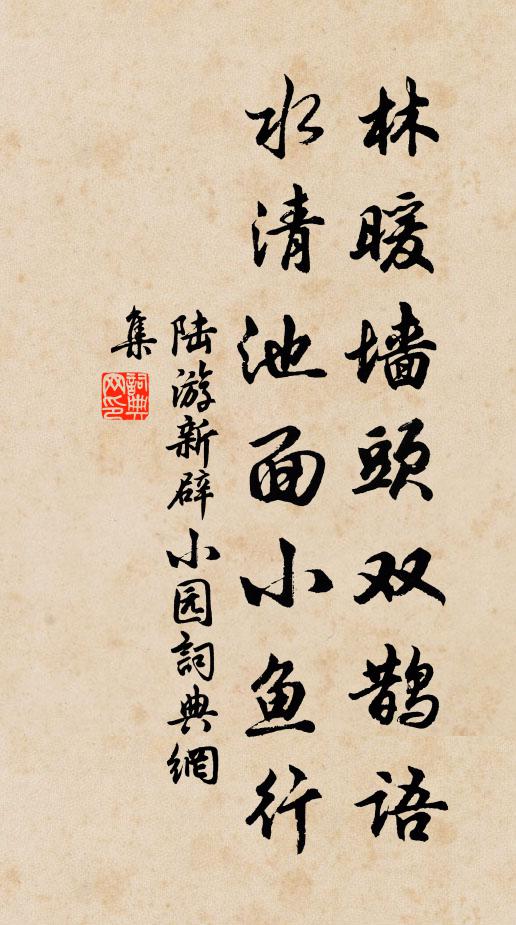 林暖墙頭双鹊语
水清池面小鱼行
陆游新辟小园詞典網
集
詞典
网印